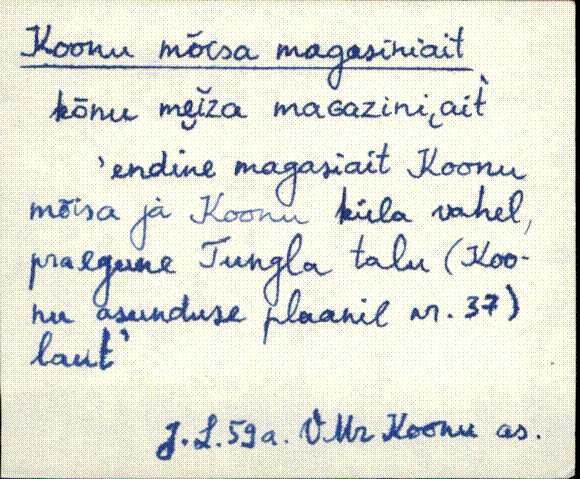 Koonu mõisa magasiniait
kōnu mei̯za maɢazini,ait̀
'endine magasiait Koonu
mõisa ja Koonu küla vahel,
praegune Tungla talu (Koo-
nu asunduse plaanil nr. 37)
laut'
J. L. 59 a. VMr Koonu as.